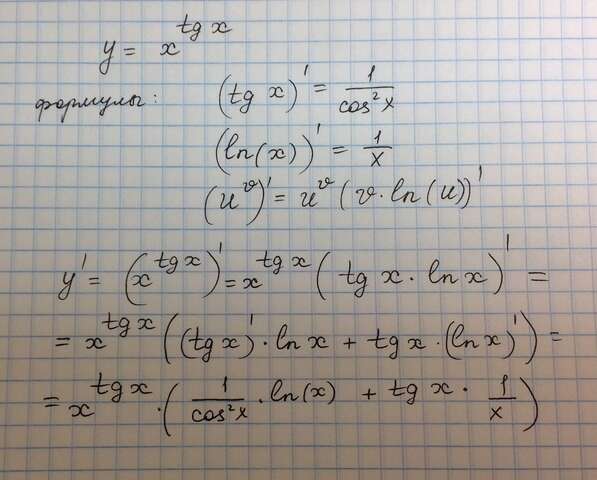 y = x^(tg x)
формулы: (tg x)' = 1/cos²x
(ln(x))' = 1/x
(u^v)' = u^v (v · ln(u))'
y' = (x^(tg x))' = x^(tg x) (tg x · ln x)' =
= x^(tg x) ((tg x)' · ln x + tg x · (ln x)') =
= x^(tg x) · (1/cos²x · ln(x) + tg x · 1/x)